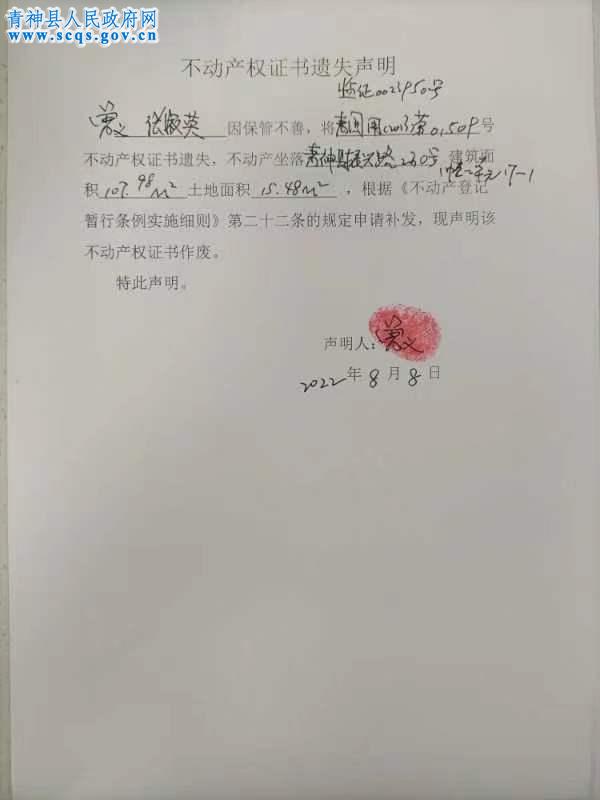 青神县人民政府网
www.scqs.gov.cn
不动产权证书遗失声明
0023950号
曾义 张俊英 因保管不善，将青国用(2013)第01509号
不动产权证书遗失，不动产坐落青神县 230号 建筑面
1幢一单元17-1
积107.98m²土地面积15.48m²，根据《不动产登记
暂行条例实施细则》第二十二条的规定申请补发，现声明该
不动产权证书作废。
特此声明。
声明人：曾义
2022年8月8日